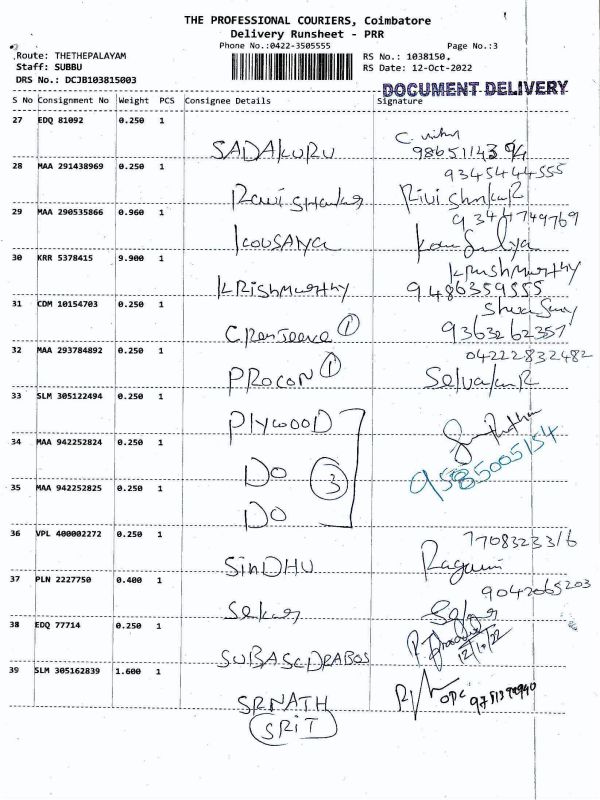 THE PROFESSIONAL COURIERS, Coimbatore
Delivery Runsheet - PRR
Phone No.:0422-3505555 Page No.:3
Route: THETHEPALAYAM RS No.: 1038150,
Staff: SUBBU RS Date: 12-Oct-2022
DRS No.: DCJB103815003
DOCUMENT DELIVERY
S No Consignment No Weight PCS Consignee Details Signature
27 EDQ 81092 0.250 1
SADAKURU 9865114394
28 MAA 291438969 0.250 1 9345444555
Ravi Shankar
29 MAA 290535866 0.960 1 9344749769
KOUSALYA Kousalya
30 KRR 5378415 9.900 1 Krishmurthy
KRishmurthy 9486359555
31 CDM 10154703 0.250 1
1 9363262357
32 MAA 293784892 0.250 1 04222832482
PROCON 1 SelvakuR
33 SLM 305122494 0.250 1
PLYWOOD
34 MAA 942252824 0.250 1
DO 3 9585005154
35 MAA 942252825 0.250 1
DO
36 VPL 400002272 0.250 1 7708323316
SINDHU Ragavi
37 PLN 2227750 0.400 1 9042065203
Sekar Sekar
38 EDQ 77714 0.250 1
12/10/22
39 SLM 305162839 1.600 1
SRNATH
SRIT